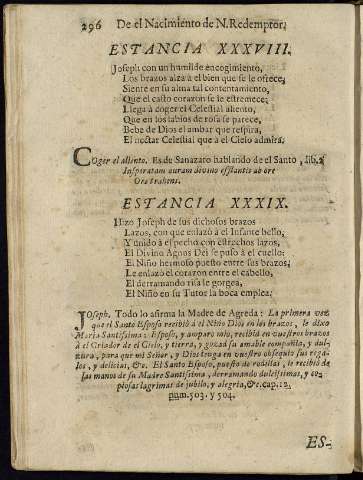 296 De el Nacimiento de N. Redemptor.
ESTANCIA XXXVIII.
Joseph con un humilde encogimiento,
Los brazos alza à el bien que se le ofrece,
Siente en su alma tal contentamiento,
Que el casto corazon se le estremece;
Llega à coger el Celestial aliento,
Que en los labios de rosa se parece,
Bebe de Dios el ambar que respira,
El noctar Celestial que à el Cielo admira.
Coger el aliento. Es de Sanazaro hablando de el Santo, lib. 2
Insperatam auram divino efflantis ab ore
Ore trahens.
ESTANCIA XXXIX.
Hizo Joseph de sus dichosos brazos
Lazos, con que enlazò à el Infante bello,
Y unido à el pecho con estrechos lazos,
El Divino Agnus Dei se puso à el cuello:
El Niño hermoso puesto entre sus brazos,
Le enlazò el corazon entre el cabello,
El derramando risa le gorgea,
El Niño en su Tutor la boca emplea.
Joseph. Todo lo afirma la Madre de Agreda: La primera vez
que el Santo Esposo recibió à el Niño Dios en los brazos, le dixo
Maria Santissima: Esposo, y amparo mio, recibid en vuestros brazos
à el Criador de el Cielo, y tierra, y gozad su amable compañia, y dul-
zura, para que mi Señor, y Dios tenga en vuestro obsequio sus rega-
los, y delicias, &c. El Santo Esposo, puesto de rodillas, le recibió de
las manos de su Madre Santissima, derramando dulcissimas, y co-
piosas lagrimas de jubilo, y alegria, &c. cap. 12.
num. 503. y 504.
ES-